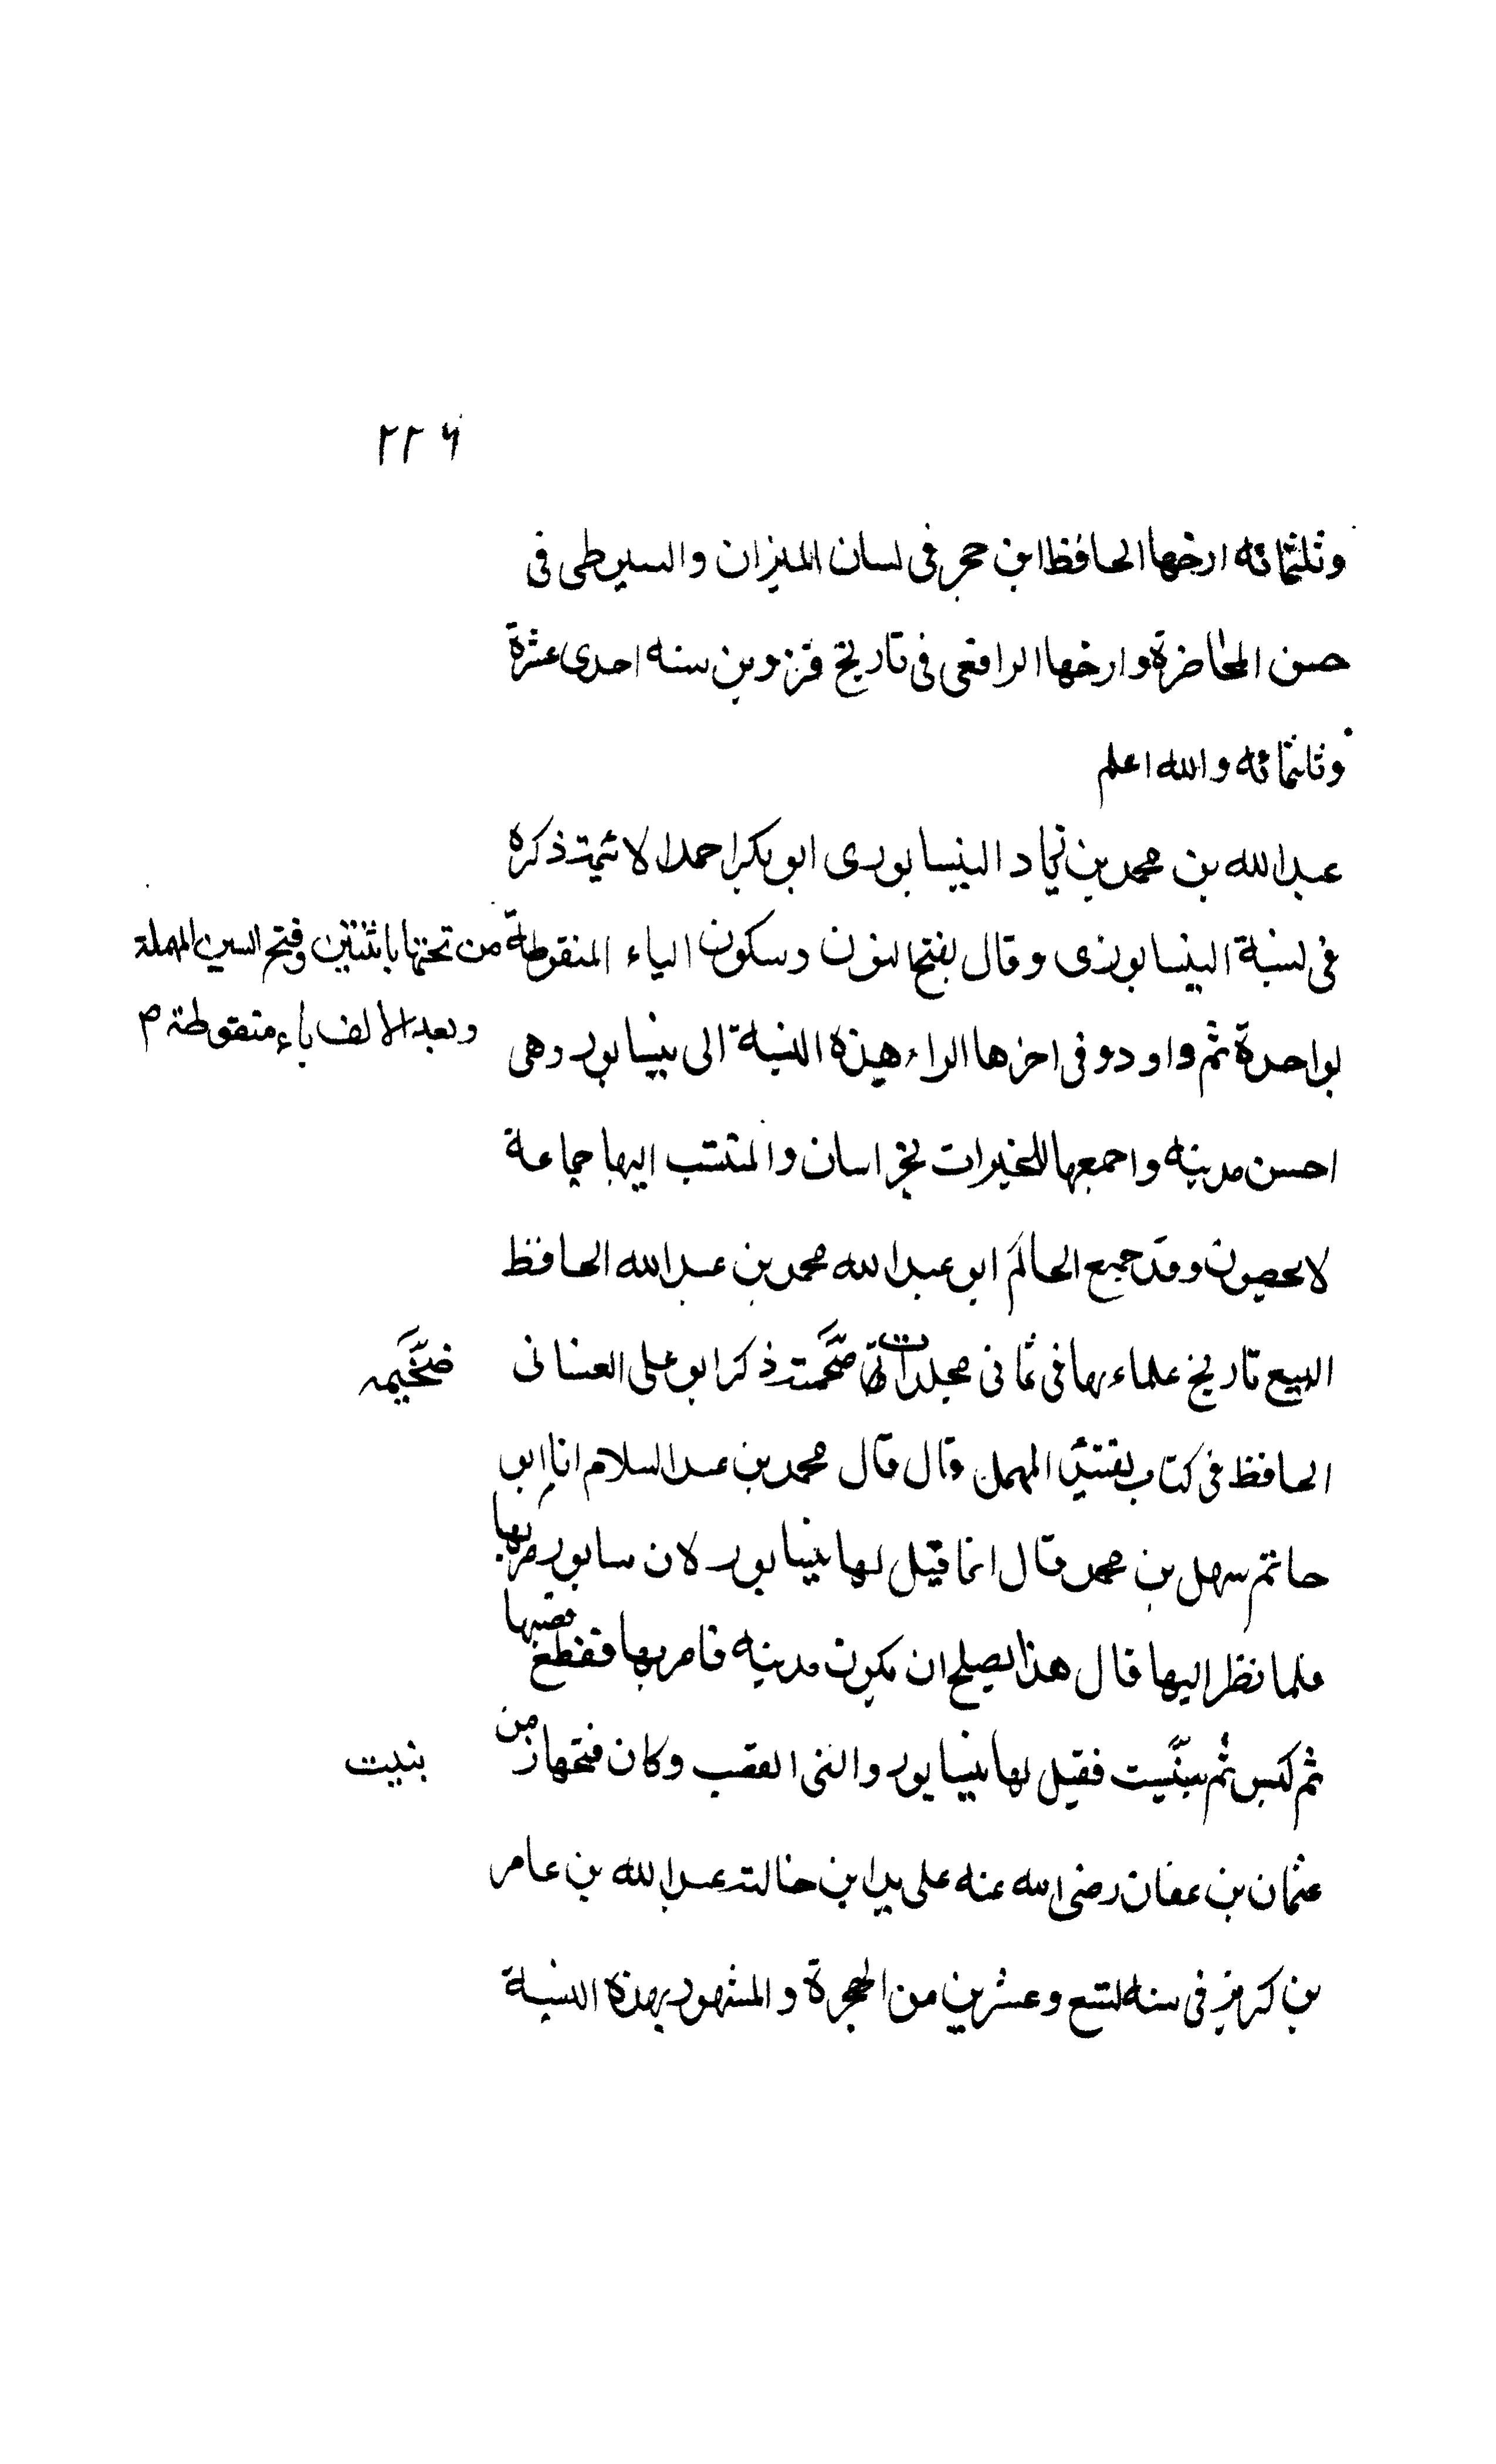 ٢٢٦
وثلثمائه ارخها الحافظ ابن حجر فى لسان الميزان والسيوطى فى
حسن المحاضرة وارخها الرافعى فى تاريخ قزوين سنه احدى عشرة
وثلثمائه والله اعلم
عبدالله بن محمد بن زياد النيسابورى ابو بكر احمد الائمة ذكره
فى نسبة النيسابورى وقال بفتح النون وسكون الياء المنقوطة من تحتها باثنتين وفتح السين المهملة
وبعد الالف باء منقوطة م
بواحدة ثم واو وفى اخرها الراء هذه النسبة الى نيسابور وهى
احسن مدينه واجمعها للخيرات بخراسان والمنتسب اليها جماعة
لا يحصون وقد جمع الحاكم ابو عبدالله محمد بن عبدالله الحافظ
البيع تاريخ علماءها فى ثمانى مجلدات ضخمة ذكر ابو على الغسانى
ضخيمه
الحافظ فى كتاب تقييد المهمل قال قال محمد بن عبدالسلام انا ابو
حاتم سهل بن محمد قال انما قيل لها نيسابور لان سابور مر بها
فلما نظر اليها قال هذا يصلح ان يكون مدينه فامر بها فقطع قصبها
ثم كبس ثم بنيت فقيل لها نيسابور والنى القصب وكان فتحها زمن
بنيت
عثمان بن عفان رضى الله عنه على يد ابن خالته عبدالله بن عامر
بن كريز فى سنه تسع وعشرين من الهجرة والمشهور بهذه النسبة